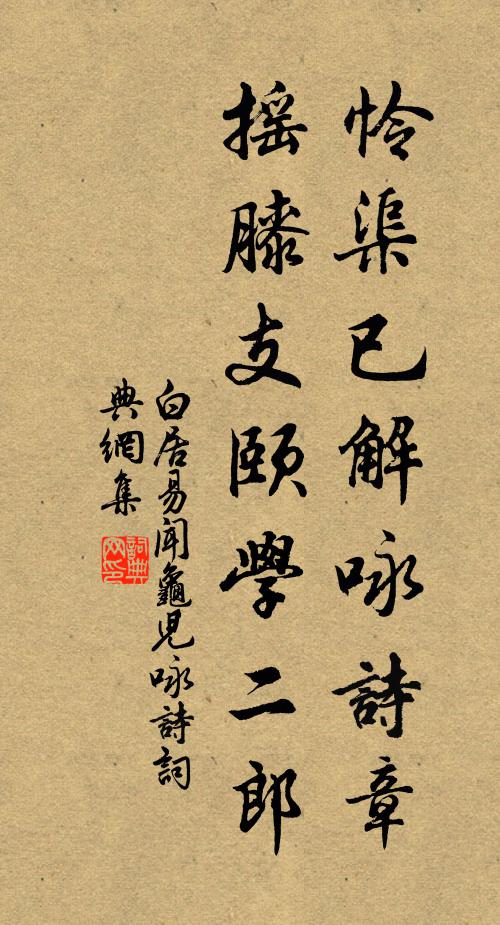 怜渠已解咏詩章
摇膝支頤學二郎
白居易聞龜兒咏詩詞
典網集
詞典
网印